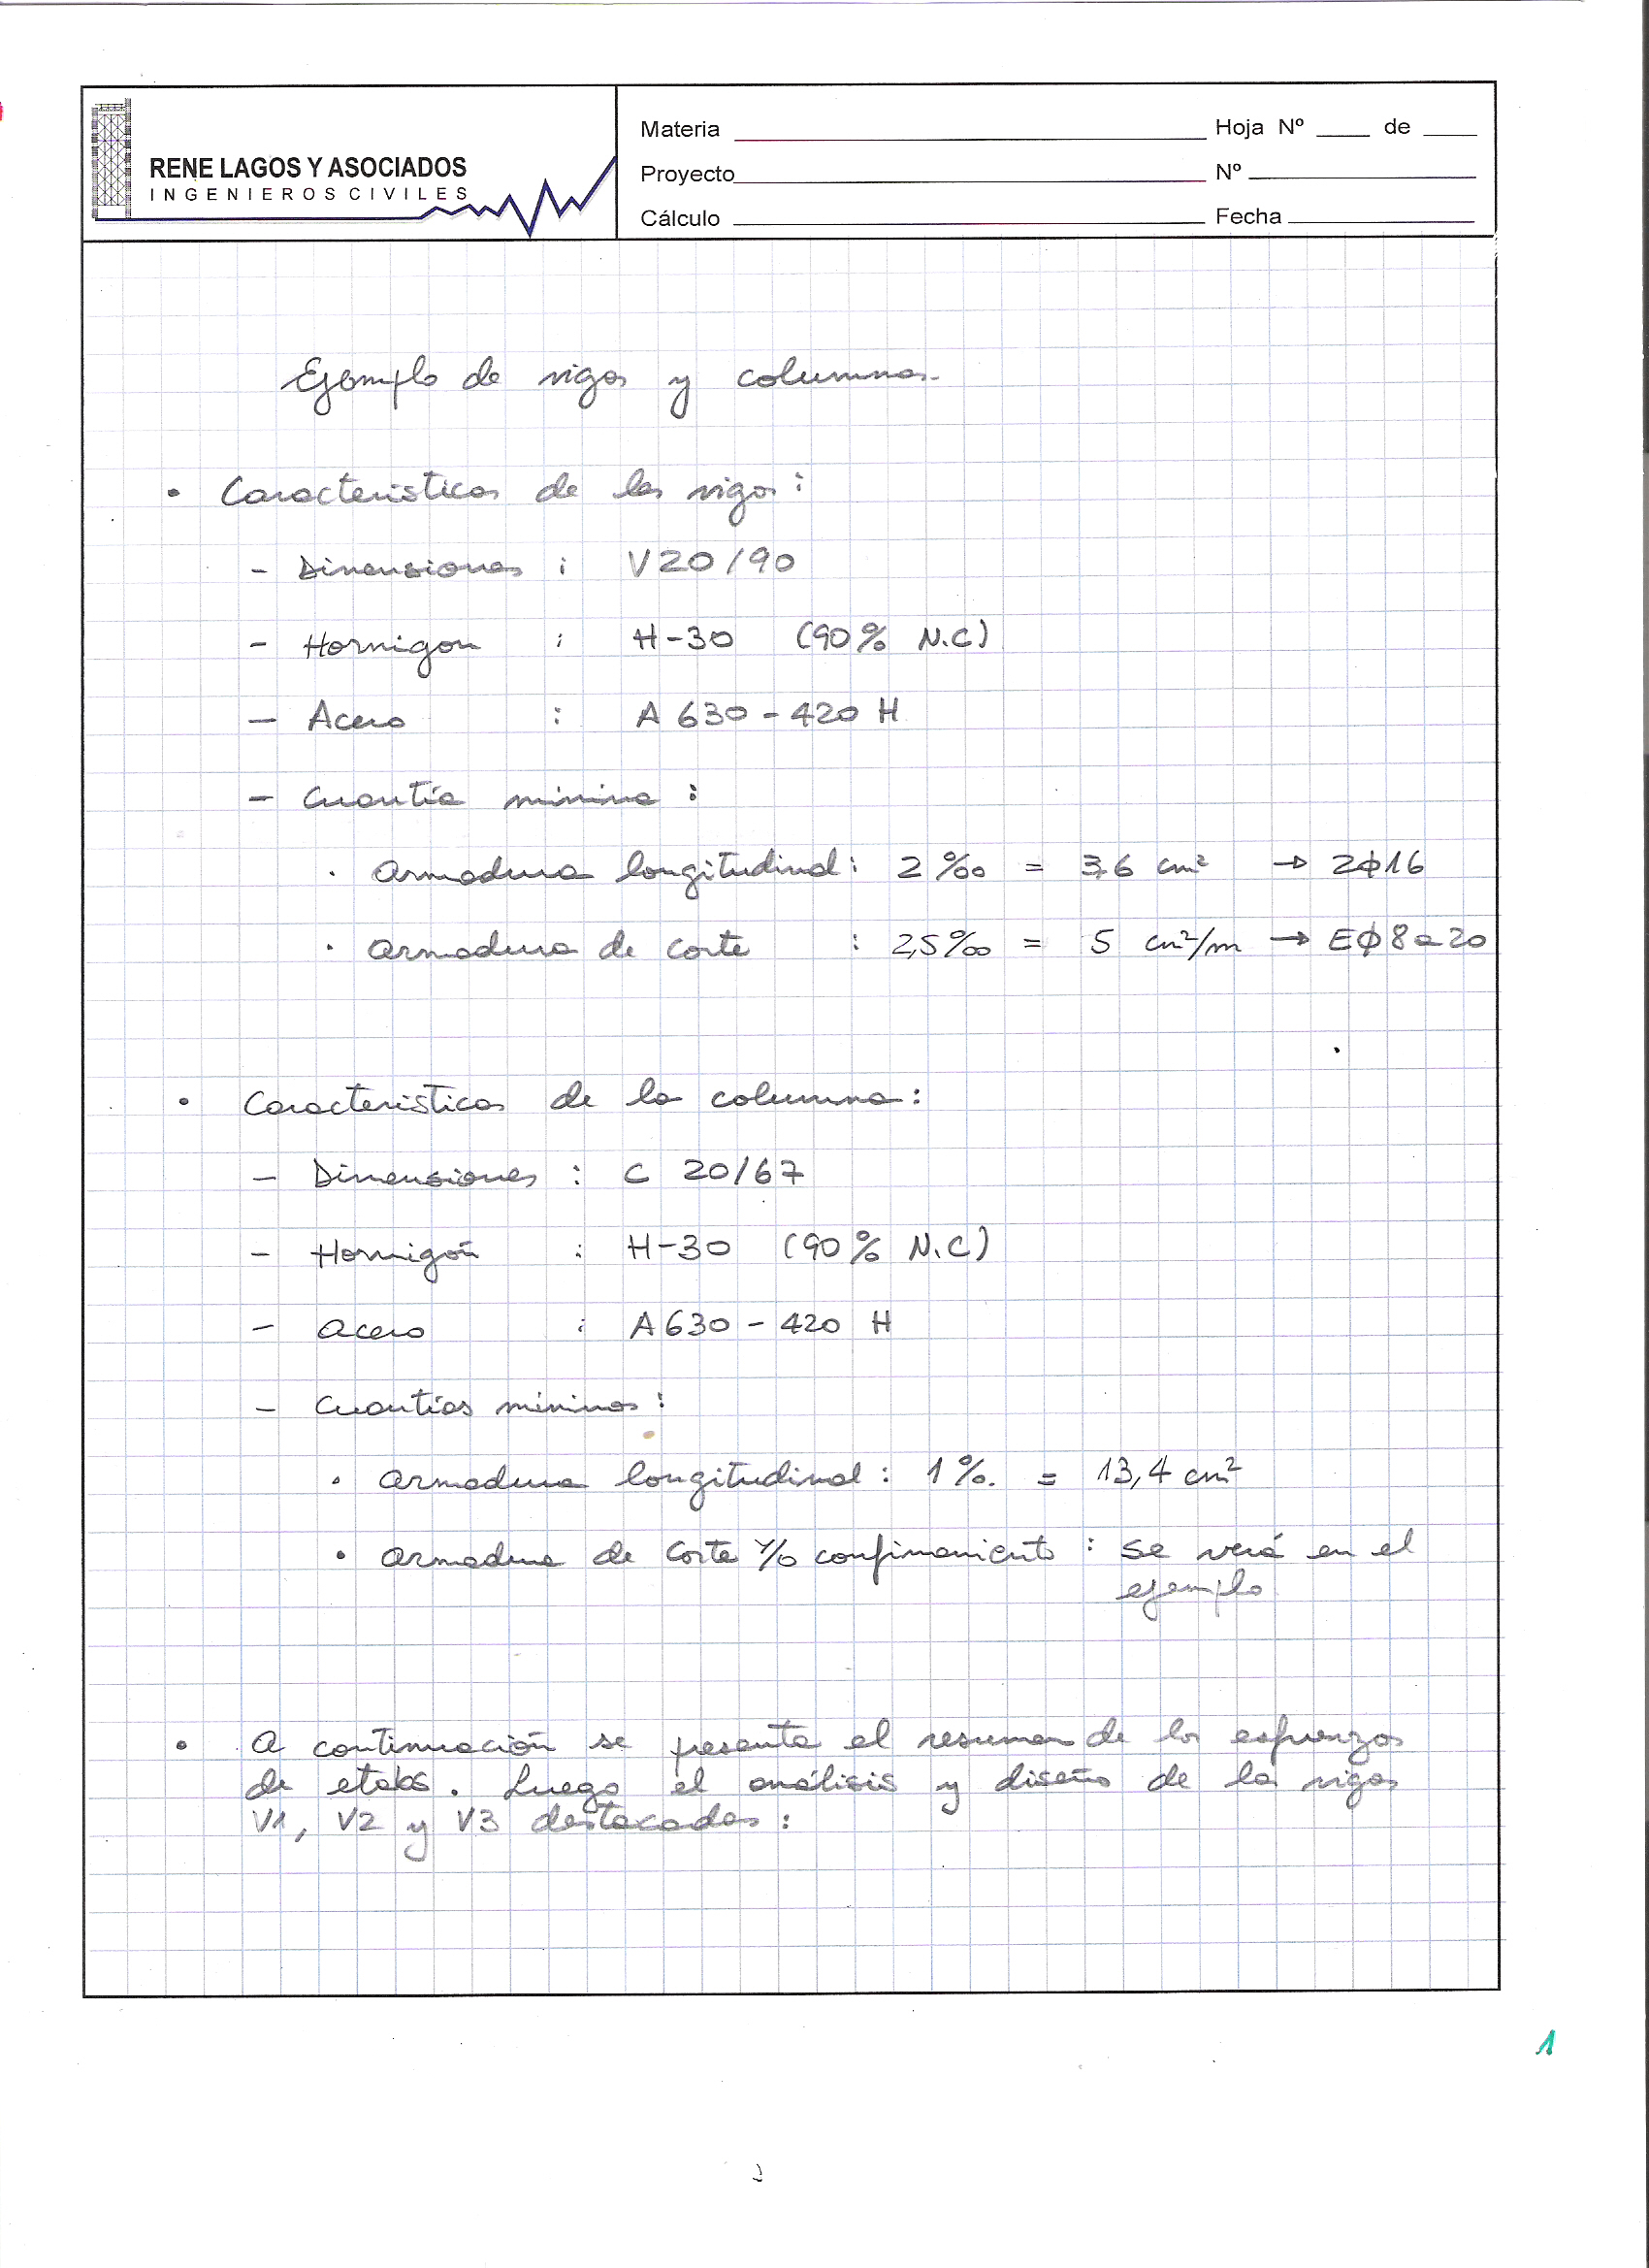 RENE LAGOS Y ASOCIADOS
INGENIEROS CIVILES
Materia
Hoja Nº ____ de ____
Proyecto
Nº
Cálculo
Fecha
Ejemplo de vigas y columnas.
• Caracteristicas de las vigas:
- Dimensiones : V20/90
- Hormigon : H-30 (90% N.C)
- Acero : A 630-420 H
- Cuantía minima :
· armadura longitudinal : 2‰ = 3,6 cm² → 2ϕ16
· armadura de corte : 2,5‰ = 5 cm²/m → Eϕ8a20
• Caracteristicas de la columna:
- Dimensiones : C 20/67
- Hormigón : H-30 (90% N.C)
- acero : A630-420 H
- Cuantías minimas :
• armadura longitudinal : 1%. = 13,4 cm²
• armadura de corte y/o confinamiento : se verá en el
ejemplo
• A continuación se presenta el resumen de los esfuerzos
de etabs. Luego el análisis y diseño de las vigas
V1, V2 y V3 destacadas :
1